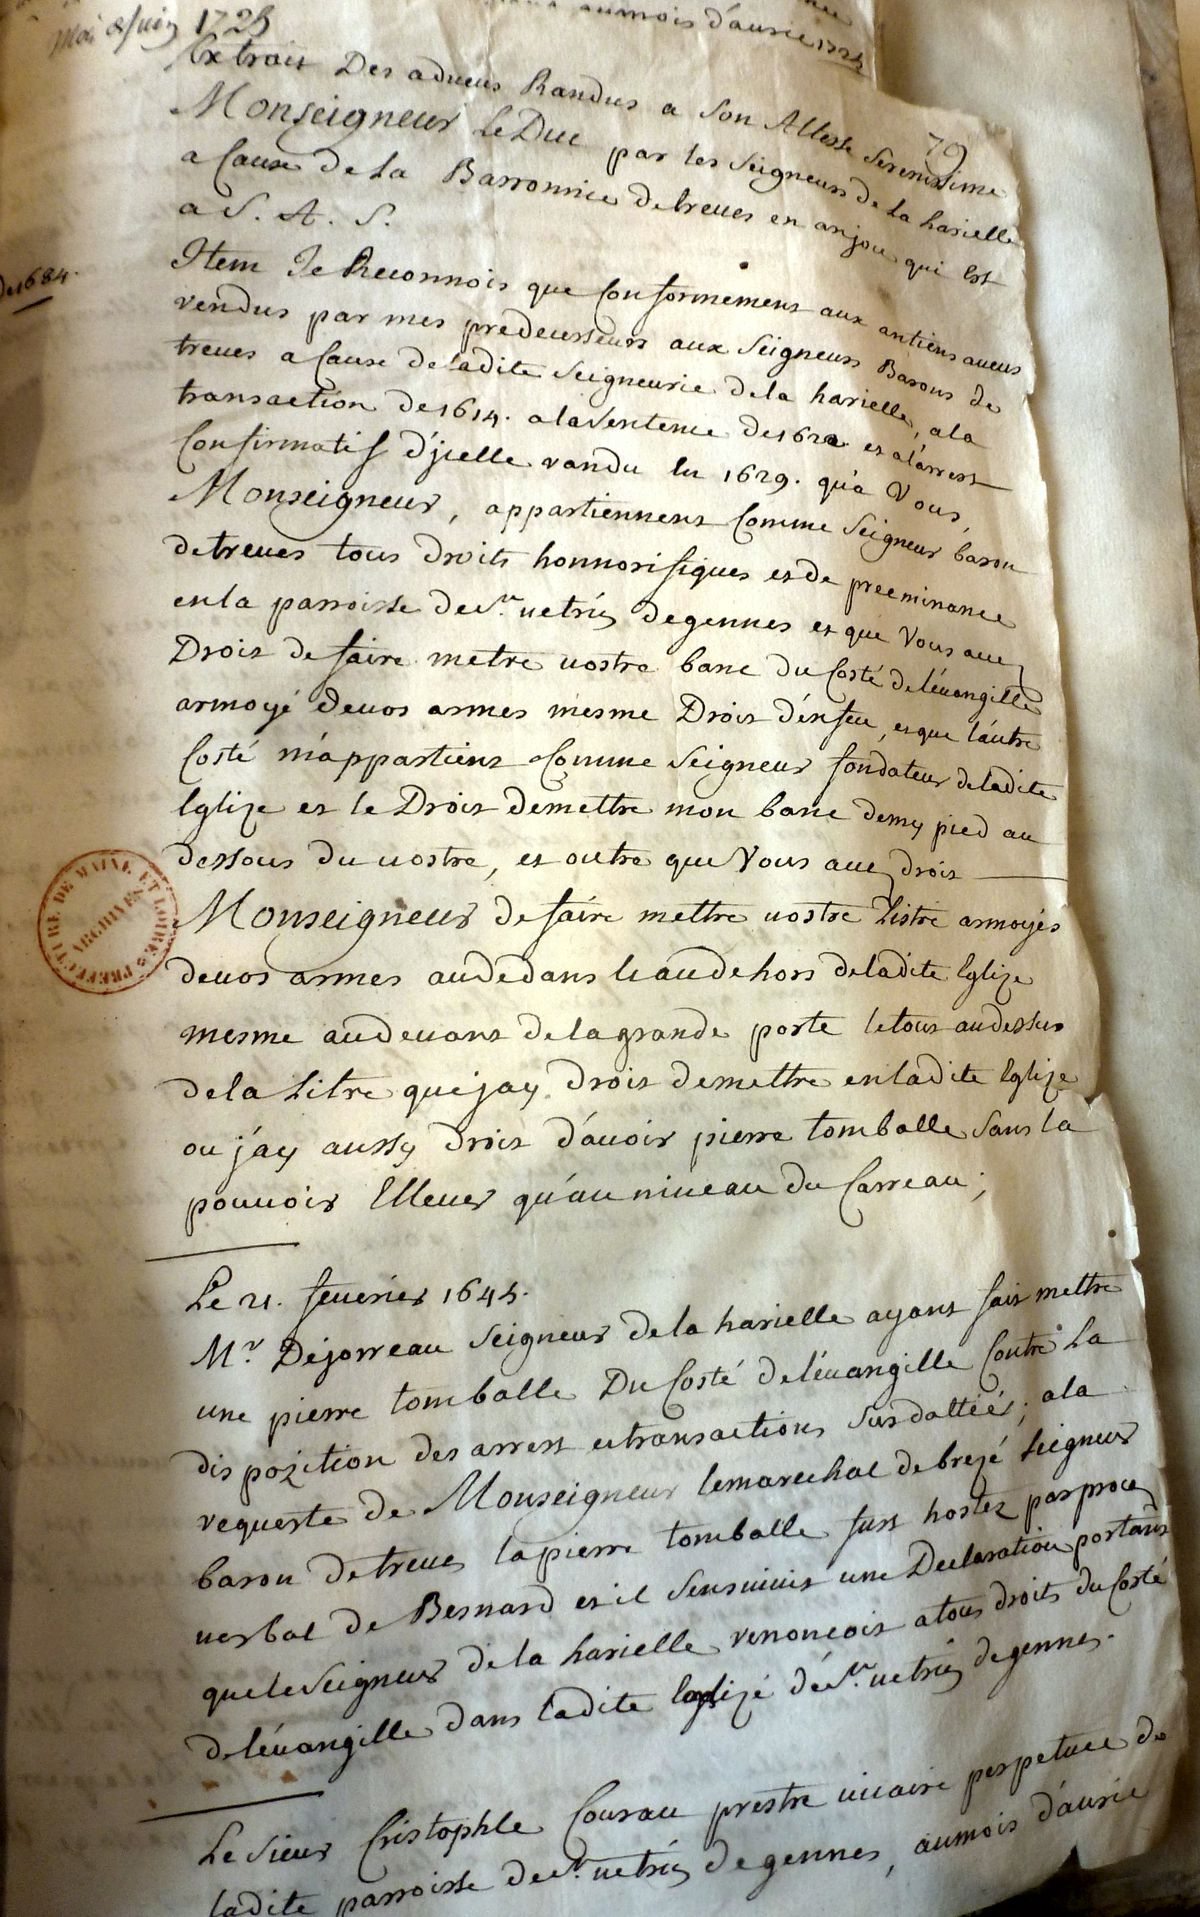 aumois d'avrie 1724
Mai & juin 1725
79
Extrait Des adveus Randus a Son Altesse Serenissime
Monseigneur Le Duc par les Seigneurs de la harielle
a Cause de La Barronnie de treves en anjou qui Est
a S. A. S.
du 1684.
Item Je Reconnois que Conformement aux antiens aveus
rendus par mes predecesseurs aux Seigneurs Barons de
treues a Cause de ladite Seigneurie de la harielle, a la
transaction de 1614. a la Sentence de 162 et a l'arrest
Confirmatif d'jcelle randu En 1629. qu'a Vous,
Monseigneur, appartiennent Comme Seigneur baron
de treues tous droits honnorifiques et de preeminance
en la parroisse de St. uetrin de gennes et que Vous auez
Droit de faire metre uostre banc du Costé de l'éuangille
armoyé de uos armes mesme Droit d'enfeu, et que l'autre
Costé m'appartient Comme Seigneur fondateur de ladite
Eglize et le Droit de mettre mon banc demy pied au
dessous du uostre, et outre que Vous auez droit
Monseigneur de faire mettre uostre Listre armoyés
de uos armes au dedans Et au dehors de ladite Eglize
mesme au deuant de la grande porte le tout au dessus
de la Litre que j'ay droit de mettre en ladite Eglize
ou j'ay aussy droit d'auoir pierre tomballe sans la
pouuoir Elleuer qu'au niueau du Carreau;
PREFECTURE DE MAINE ET LOIRE
ARCHIVES
Le 21. feuérier 1645.
Mr. Dejorreau Seigneur de la harielle ayant fait mettre
une pierre tomballe Du Costé de l'éuangille Contre La
dispozition des arrest et transactions Susdattéés; a la
requeste de Monseigneur le marechal de brezé Seigneur
baron de treues la pierre tomballe fust hostez par procez
uerbal de Besnard et il s'ensuiuit une Declaration portant
que le Seigneur de la harielle renonçoit a tous droits du Costé
de l'éuangille dans ladite Eglize de St. uetrin de gennes.
Le Sieur Cristophle Courau prestre uicaire perpetuel de
ladite parroisse de St. uetrin de gennes, au mois d'aurie